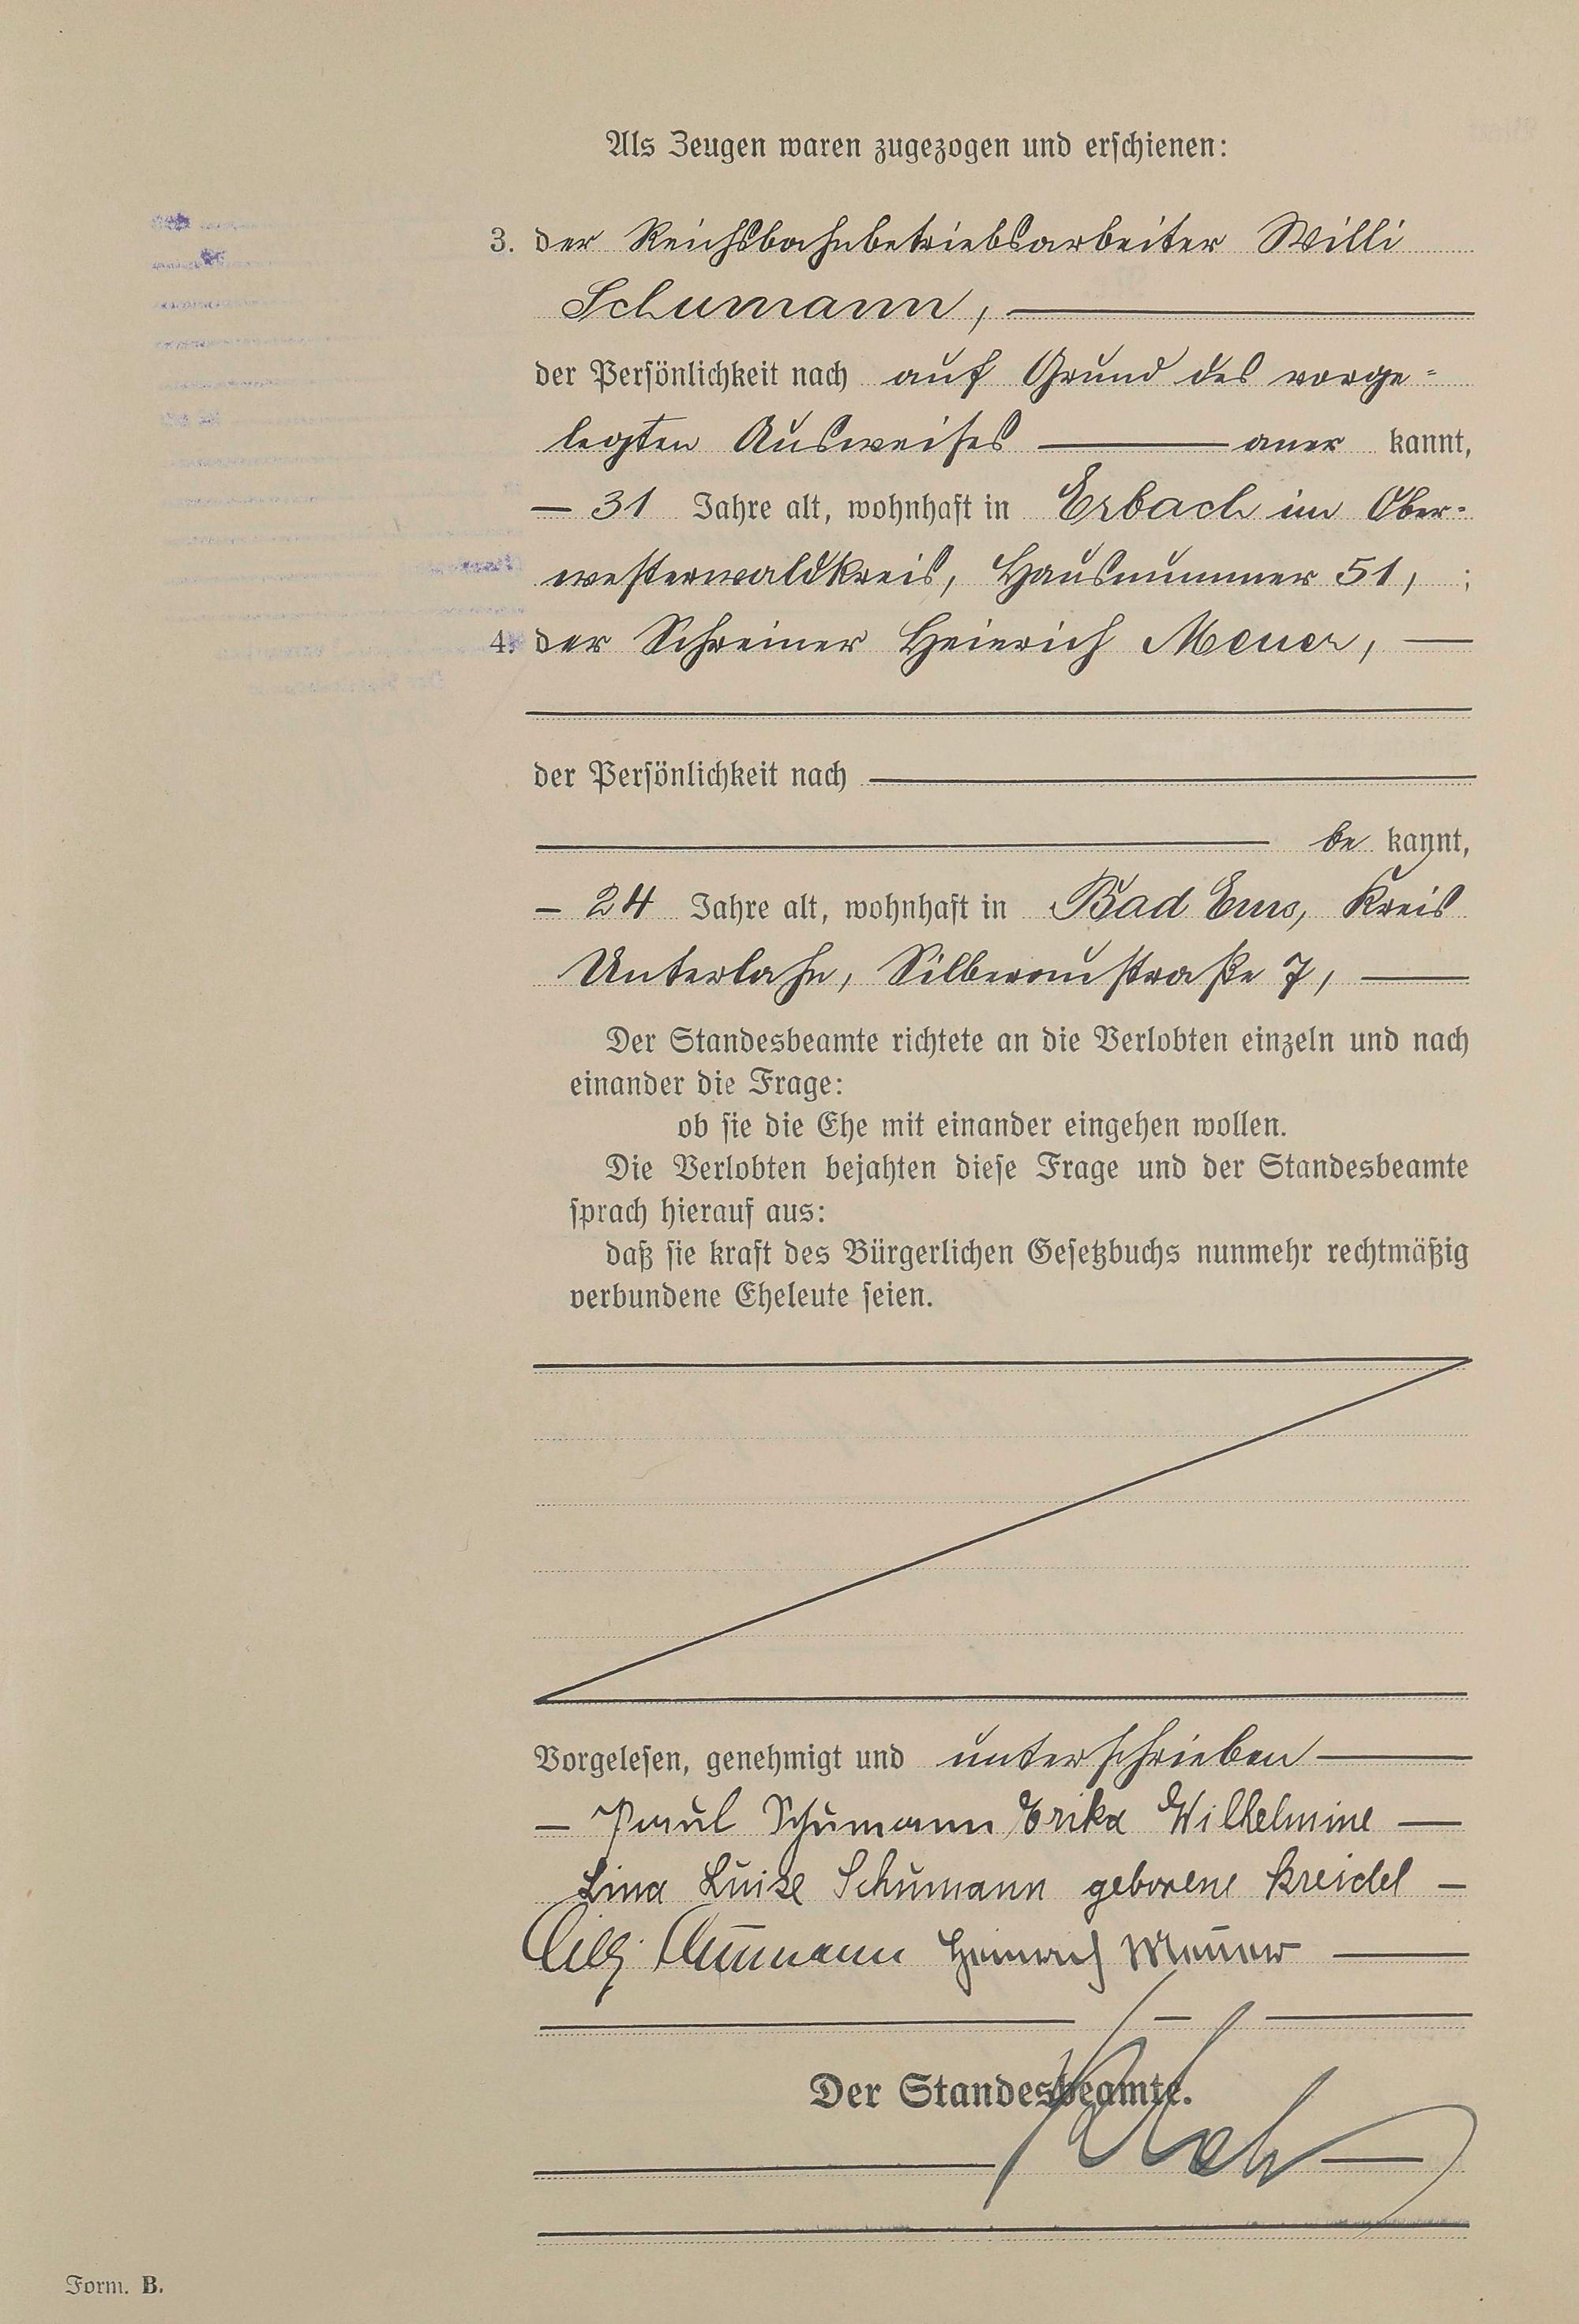 Als Zeugen waren zugezogen und erschienen:
3. der Reichsbahnbetriebsarbeiter Willi
Schumann,
der Persönlichkeit nach auf Grund des vorge=
legten Ausweises — aner kannt,
— 31 Jahre alt, wohnhaft in Erbach im Ober=
westerwaldkreis, Hausnummer 51, ;
4. der Schreiner Heinrich Meuer, —
der Persönlichkeit nach —
— be kannt,
— 24 Jahre alt, wohnhaft in Bad Ems, Kreis
Unterlahn, Silberaustraße 7, —
Der Standesbeamte richtete an die Verlobten einzeln und nach
einander die Frage:
ob sie die Ehe mit einander eingehen wollen.
Die Verlobten bejahten diese Frage und der Standesbeamte
sprach hierauf aus:
daß sie kraft des Bürgerlichen Gesetzbuchs nunmehr rechtmäßig
verbundene Eheleute seien.
Vorgelesen, genehmigt und unterschrieben —
— Paul Schumann Erika Wilhelmine —
Lina Luise Schumann geborene Kreidel —
Willi Schumann Heinrich Meuer —
Der Standesbeamte.
Form. B.